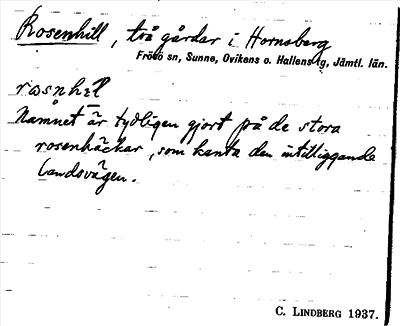 Rosenhill, två gårdar i Hornsberg
Frösö sn, Sunne, Ovikens o. Hallens tg, Jämtl. län.
rosnhɛl
Namnet är tydligen gjort på de stora
rosenhäckar, som kanta den intilliggande
landsvägen.
C. LINDBERG 1937.